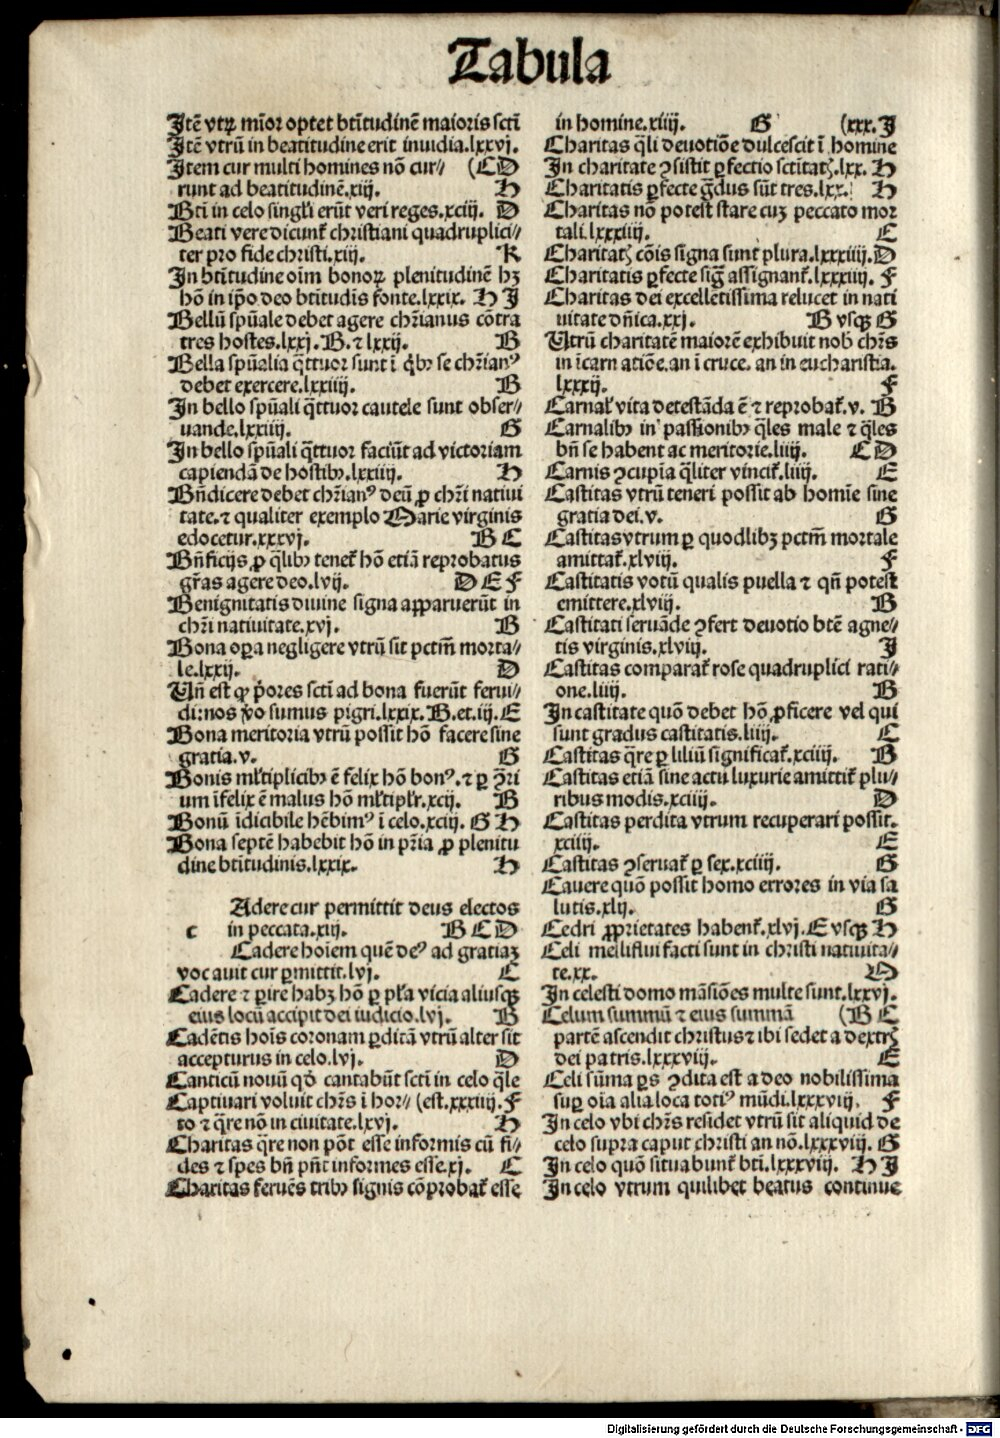 Tabula
Itē vtꝝ mīor optet btītudinē maioris sctī
Itē vtrū in beatitudine erit inuidia.lxxvj.
Item cur multi homines nō cur⸗ (C D
runt ad beatitudinē.xiij. H
Btī in celo singĺi erūt veri reges.xciij. D
Beati vere dicunt̄ christiani quadruplici⸗
ter pro fide christi.xiij. K
In btītudine oīm bonoꝝ plenitudinē hꝫ
hō in ip̄o deo btītudīs fonte.lxxix. H I
Bellū spūale debet agere chr̄ianus cōtra
tres hostes.lxxj.B.⁊ lxxij. B
Bella spūalia q̄ttuor sunt ī qͥbꝫ se chr̄ianꝰ
debet exercere.lxxiiij. B
In bello spūali q̄ttuor cautele sunt obser⸗
uande.lxxiiij. G
In bello spūali q̄ttuor faciūt ad victoriam
capiendā de hostibꝫ.lxxiiij. H
Bn̄dicere debet chr̄ianꝰ deū ꝓ chr̄i natiui
tate.⁊ qualiter exemplo Marie virginis
edocetur.xxxvj. B C
Bn̄ficijs ꝓ qͥlibꝫ tenet̄ hō etiā reprobatus
gr̄as agere deo.lvij. D E F
Benignitatis diuine signa apparuerūt in
chr̄i natiuitate.xvj. B
Bona oꝑa negligere vtrū sit pctm̄ morta⸗
le.lxxij. D
Un̄ est qꝙ pͥores sctī ad bona fuerūt ferui⸗
di:nos ꝟo sumus pigri.lxxix.B.et.iij.E
Bona meritoria vtrū possit hō facere sine
gratia.v. G
Bonis mĺtiplicibꝫ ē felix hō bonꝰ.⁊ ꝑ ꝯr̄i
um īfelix ē malus hō mĺtipĺr.xcij. B
Bonū īdicibile hēbimꝰ ī celo.xciij. G H
Bona septē habebit hō in pr̄ia ꝓ plenitu
dine btītudinis.lxxix. H
Adere cur permittit deus electos
c in peccata.xiij. B C D
Cadere hoīem quē deꝰ ad gratiaꝫ
vocauit cur ꝑmittit.lvj. C
Cadere ⁊ ꝑire habꝫ hō ꝑ pĺa vicia aliusqꝫ
eius locū accipit dei iudicio.lvj. B
Cadētis hoīs coronam ꝑditā vtrū alter sit
accepturus in celo.lvj. D
Canticū nouū qđ cantabūt sctī in celo q̄le
Captiuari voluit chr̄s ī hor⸗ (est.xxxiiij.F
to ⁊ q̄re nō in ciuitate.lxvj. H
Charitas q̄re non pōt esse informis cū fi⸗
des ⁊ spes bn̄ pn̄t informes esse.xj. C
Charitas feruēs tribꝫ signis cōprobat̄ esse
in homine.xiiij. G (xxx.I
Charitas q̄li deuotiōe dulcescit ī homine
In charitate ꝯsistit ꝑfectio sctītatꝭ.lxx. H
Charitatis ꝑfecte gͣdus sūt tres.lxx. H
Charitas nō potest stare cuꝫ peccato mor
tali.lxxxiiij. C
Charitatꝭ cōis signa sunt plura.lxxxiiij.D
Charitatis ꝑfecte sigͣ assignant̄.lxxxiiij. F
Charitas dei excellētissima relucet in nati
uitate dn̄ica.xxj. B vsqꝫ G
Utrū charitatē maiorē exhibuit nob̄ chr̄s
in īcarnatiōe.an ī cruce.an in eucharistia.
lxxxij. F
Carnaĺ vita detestāda ē ⁊ reprobat̄.v. B
Carnalibꝫ in passionibꝫ q̄les male ⁊ q̄les
bn̄ se habent ac meritorie.liiij. C D
Carnis ꝯcupīa q̄liter vincit̄.liiij. E
Castitas vtrū teneri possit ab homīe sine
gratia dei.v. G
Castitas vtrum ꝑ quodlibꝫ pctm̄ mortale
amittat̄.xlviij. F
Castitatis votū qualis puella ⁊ qn̄ potest
emittere.xlviij. B
Castitati seruāde ꝯfert deuotio btē agne⸗
tis virginis.xlviij. I
Castitas comparat̄ rose quadruplici rati⸗
one.liiij. B
In castitate quō debet hō ꝓficere vel qui
sunt gradus castitatis.liiij. C
Castitas q̄re ꝑ liliū significat̄.xciiij. B
Castitas etiā sine actu luxurie amittit̄ plu⸗
ribus modis.xciiij. D
Castitas perdita vtrum recuperari possit.
xciiij. E
Castitas ꝯseruat̄ ꝑ sex.xciiij. G
Cauere quō possit homo errores in via sa
lutis.xlij. G
Cedri ꝓprietates habent̄.xlvj.E vsqꝫ H
Celi melliflui facti sunt in christi natiuita⸗
te.xx. M
In celesti domo māsiōes multe sunt.lxxvj.
Celum summū ⁊ eius summā (B C
partē ascendit christus ⁊ ibi sedet a dextrꝭ
dei patris.lxxxviij. E
Celi sūma ꝑs ꝯdita est a deo nobilissima
suꝑ oīa alia loca totiꝰ mūdi.lxxxviij. F
In celo vbi chr̄s residet vtrū sit aliquid de
celo supra caput christi an nō.lxxxviij. G
In celo quō situabunt̄ btī.lxxxviij. H I
In celo vtrum quilibet beatus continue
Digitalisierung gefördert durch die Deutsche Forschungsgemeinschaft - DFG